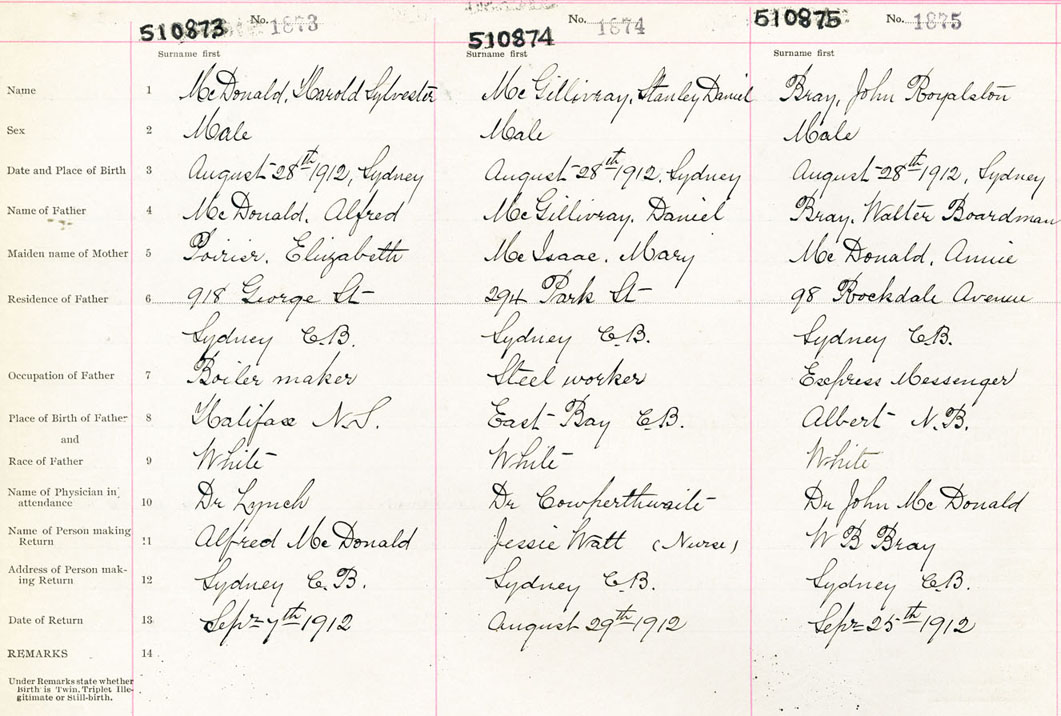 510873 No. 1873
510874 No. 1874
510875 No. 1875
Surname first Surname first Surname first
Name 1 McDonald, Harold Sylvester McGillivray, Stanley Daniel Bray, John Royalston
Sex 2 Male Male Male
Date and Place of Birth 3 August 28th 1912, Sydney August 28th 1912, Sydney August 28th 1912, Sydney
Name of Father 4 McDonald, Alfred McGillivray, Daniel Bray, Walter Boardman
Maiden name of Mother 5 Poirier, Elizabeth McIsaac, Mary McDonald, Annie
Residence of Father 6 918 George St 294 Park St 98 Rockdale Avenue
Sydney C.B. Sydney C.B. Sydney C.B.
Occupation of Father 7 Boiler maker Steel worker Express Messenger
Place of Birth of Father 8 Halifax N.S. East Bay C.B. Albert N.B.
and
Race of Father 9 White White White
Name of Physician in attendance 10 Dr Lynch Dr Cowperthwaite Dr John McDonald
Name of Person making Return 11 Alfred McDonald Jessie Watt (Nurse) W B Bray
Address of Person mak-
ing Return 12 Sydney C.B. Sydney C.B. Sydney C.B.
Date of Return 13 Sept 7th 1912 August 29th 1912 Sept 25th 1912
REMARKS 14
Under Remarks state whether
Birth is Twin, Triplet Ille-
gitimate or Still-birth.